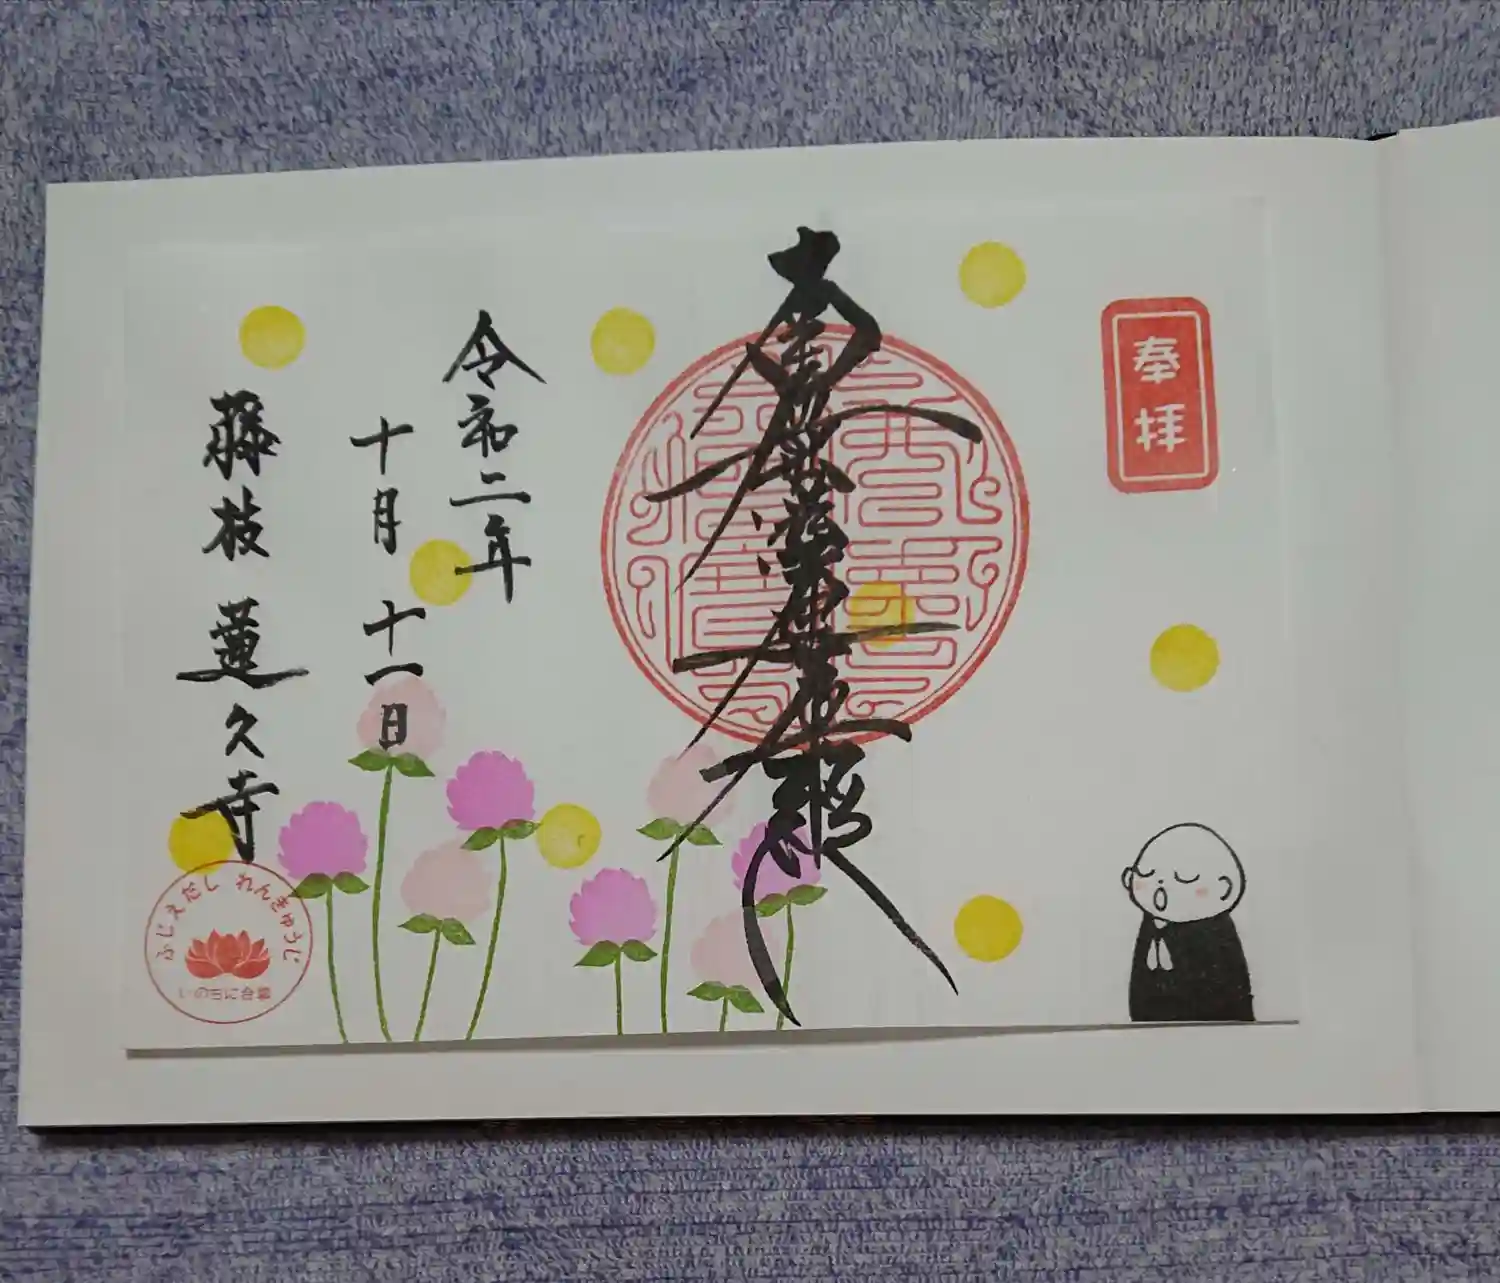 奉拝
南無妙法蓮華経
令和二年
十月十一日
藤枝 蓮久寺
ふじえだし れんきゅうじ
いのちに合掌